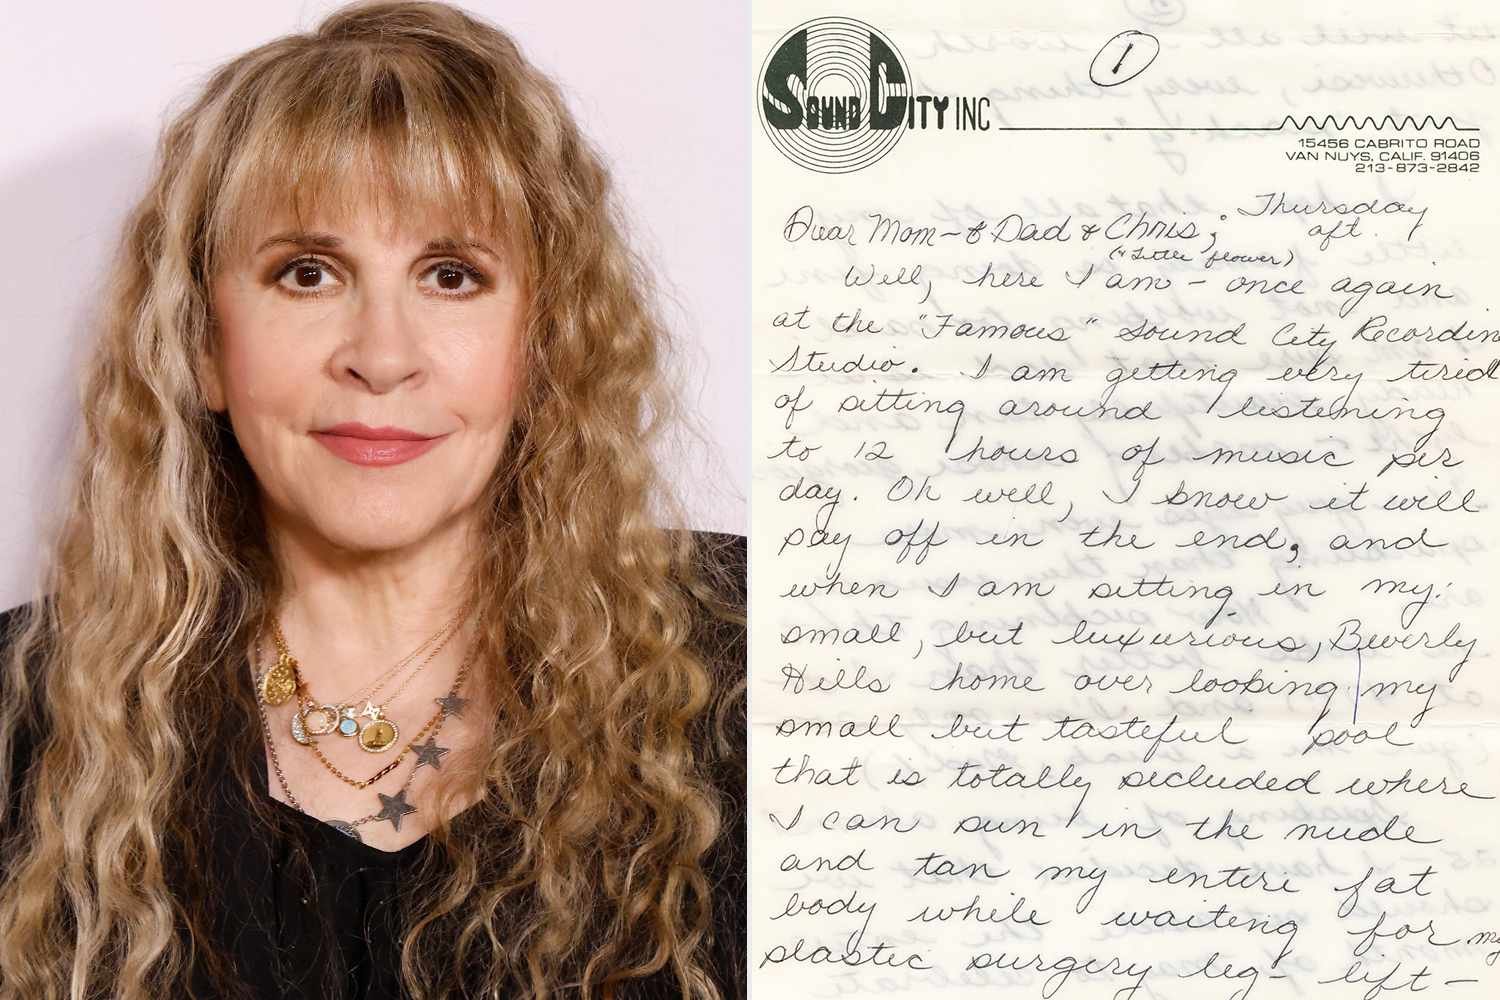 1
SOUND CITY INC
15456 CABRITO ROAD
VAN NUYS, CALIF. 91406
213-873-2842
Thursday
aft.
Dear Mom - & Dad & Chris;
(& little flower)
Well, here I am - once again
at the "Famous" Sound City Recordin
Studio. I am getting very tired
of sitting around listening
to 12 hours of music per
day. Oh well, I know it will
pay off in the end, and
when I am sitting in my
small, but luxurious, Beverly
Hills home over looking my
small but tasteful pool
that is totally secluded where
I can sun in the nude
and tan my entire fat
body while waiteng for my
plastic surgery leg - lift -